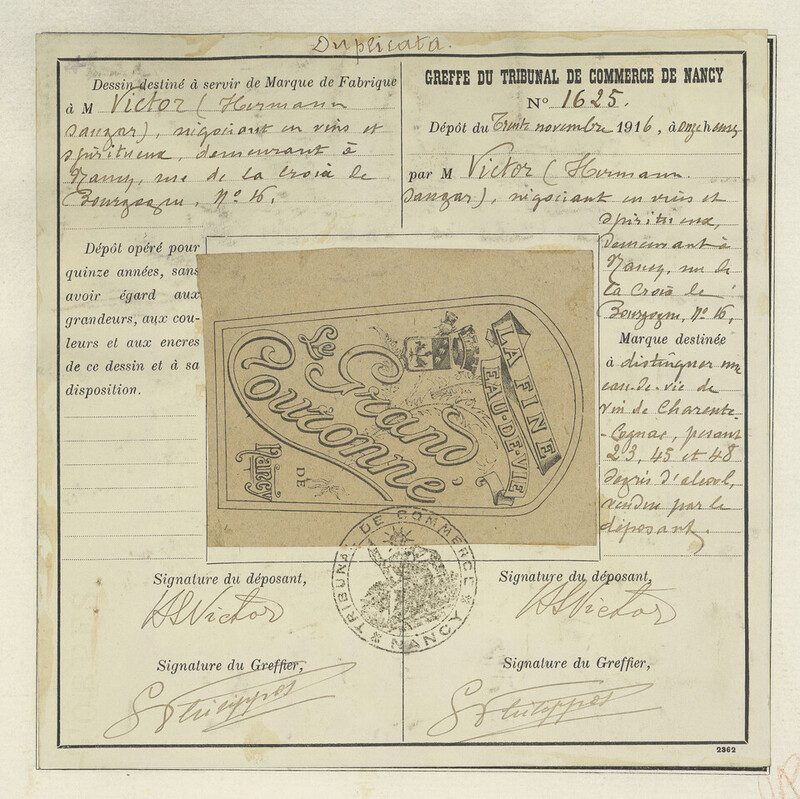 Duplicata.
Dessin destiné à servir de Marque de Fabrique
à M Victor (Hermann
Sanzar), négociant en vins et
spiritueux, demeurant à
Nancy, rue de la Croix de
Bourgogne, No 16.
Dépôt opéré pour
quinze années, sans
avoir égard aux
grandeurs, aux cou-
leurs et aux encres
de ce dessin et à sa
disposition.
GREFFE DU TRIBUNAL DE COMMERCE DE NANCY
No 1625.
Dépôt du Trente novembre 1916, à onze heures
par M Victor (Hermann
Sanzar), négociant en vins et
spiritueux,
demeurant à
Nancy, rue de
la Croix de
Bourgogne, No 16.
Marque destinée
à distinguer une
eau-de-vie de
vin de Charente-
-Cognac, pesant
23, 45 et 48
degrés d'alcool,
vendue par le
déposant.
LA FINE
EAU-DE-VIE
Le Grand
Couronné
DE
Nancy
TRIBUNAL DE COMMERCE
NANCY
Signature du déposant,
HSVictor
Signature du Greffier,
Philippot
Signature du déposant,
HSVictor
Signature du Greffier,
Philippot
2362